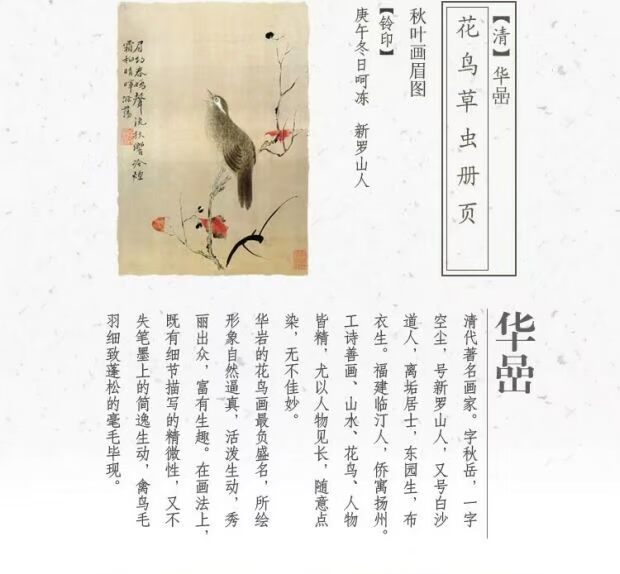 【清】华嵒
花鸟草虫册页
秋叶画眉图
【钤印】
庚午冬日呵冻 新罗山人
华嵒
清代著名画家。字秋岳，一字
空尘，号新罗山人，又号白沙
道人，离垢居士，东园生，布
衣生。福建临汀人，侨寓扬州。
工诗善画、山水、花鸟、人物
皆精，尤以人物见长，随意点
染，无不佳妙。
华岩的花鸟画最负盛名，所绘
形象自然逼真，活泼生动，秀
丽出众，富有生趣。在画法上，
既有细节描写的精微性，又不
失笔墨上的简逸生动，禽鸟毛
羽细致蓬松的毫毛毕现。